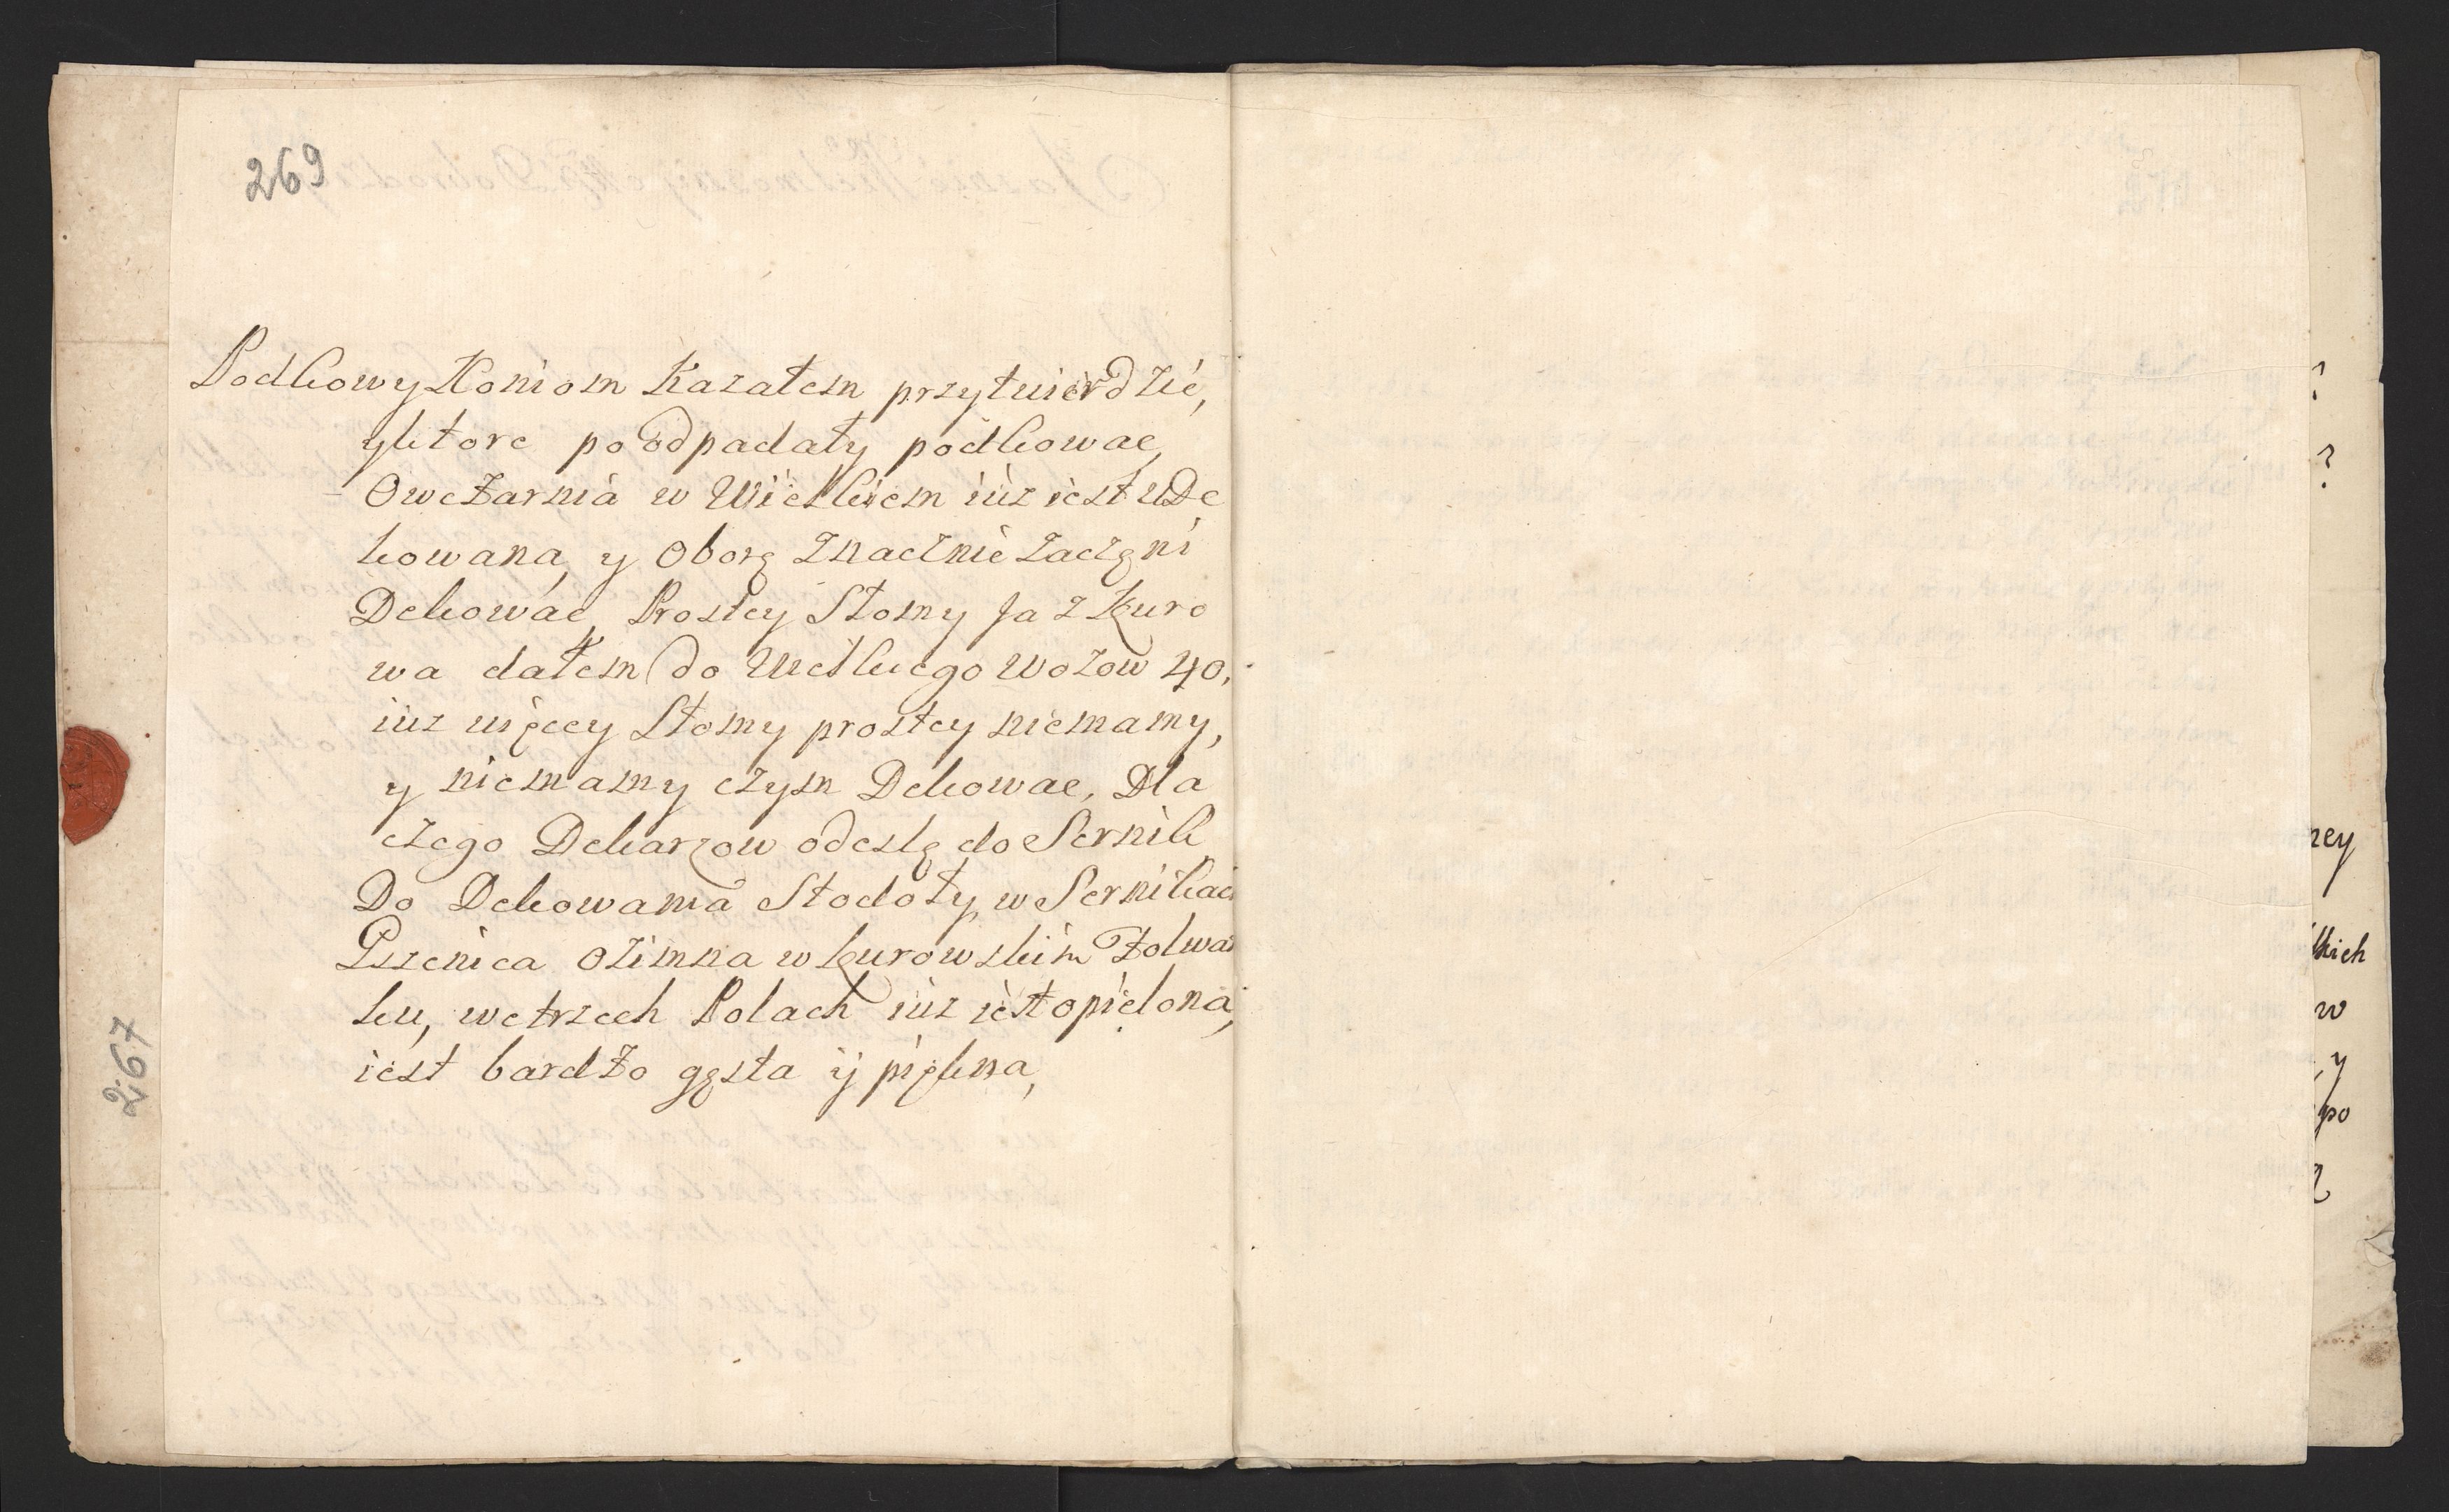 269
Podkowy Koniom Kazałem przytwierdzić,
y ktore poodpadały podkowac,
Owczarnia w Wielkiem iuz iest uDe
kowana, y Oborę Znacznie Zaczęni
Dekowac, Prostey Słomy Ja z Kuro
wa dałem do Wielkiego Wozow 40,
iuz więcey Słomy prostey niemamy,
y niemamy czym Dekowac, Dla
czego Dekarzow odeslę do Sernik
Do Dekowania Stodoły, w Sernikach
Pszenica Ozimna w kurowskim Folwar
ku, wetrzech Polach iuz iest opielona,
iest bardzo gęsta ij piękna,
267
?
?
ney
kich
w
, y
po